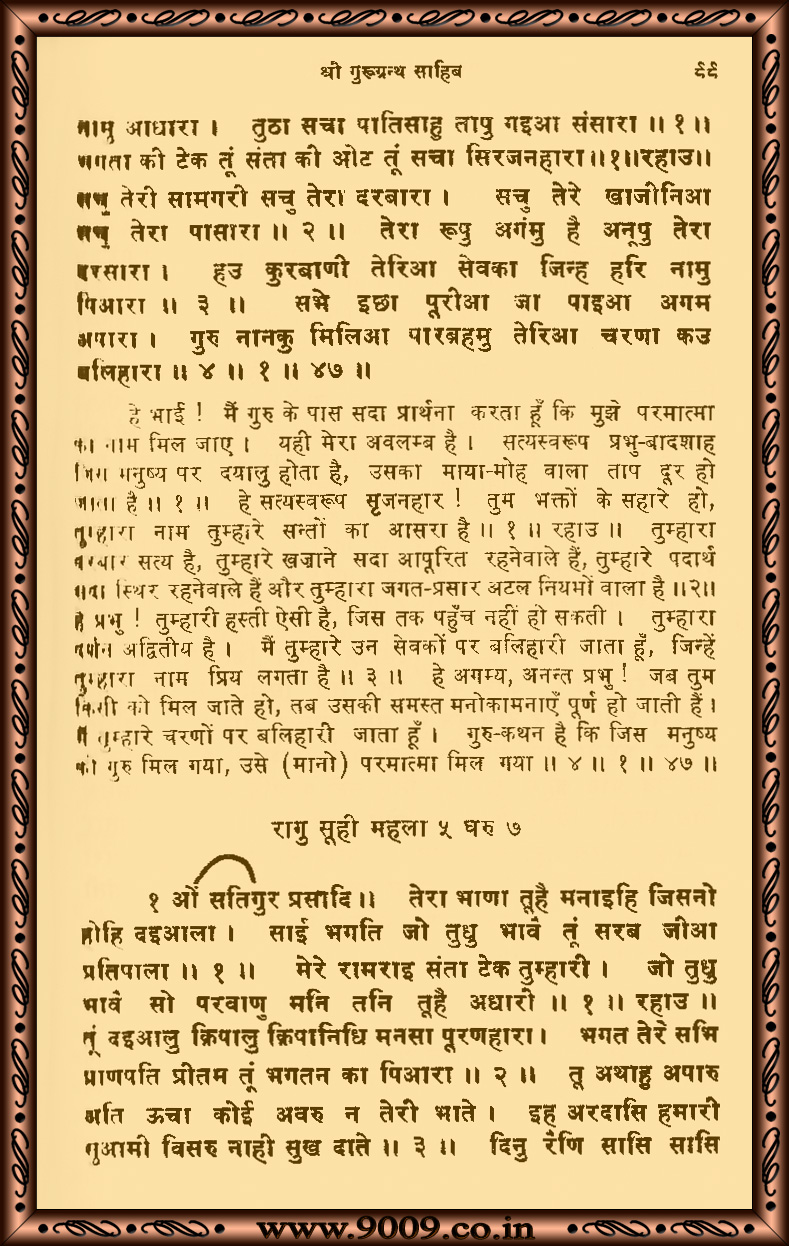 श्री गुरूग्रन्थ साहिब ९९
नामु आधारा । तुठा सचा पातिसाहु तापु गइआ संसारा ॥ १ ॥
भगता की टेक तूं संता की ओट तूं सचा सिरजनहारा ॥ १ ॥ रहाउ ॥
सचु तेरी सामगरी सचु तेरा दरबारा । सचु तेरे खाजीनिआ
सचु तेरा पासारा ॥ २ ॥ तेरा रूपु अगंमु है अनूपु तेरा
दरसारा । हउ कुरबाणी तेरिआ सेवका जिन्ह हरि नामु
पिआरा ॥ ३ ॥ सभे इछा पूरीआ जा पाइआ अगम
अपारा । गुरु नानकु मिलिआ पारब्रहमु तेरिआ चरणा कउ
बलिहारा ॥ ४ ॥ १ ॥ ४७ ॥
हे भाई ! मैं गुरु के पास सदा प्रार्थना करता हूँ कि मुझे परमात्मा
का नाम मिल जाए । यही मेरा अवलम्ब है । सत्यस्वरूप प्रभु-बादशाह
जिस मनुष्य पर दयालु होता है, उसका माया-मोह वाला ताप दूर हो
जाता है ॥ १ ॥ हे सत्यस्वरूप सृजनहार ! तुम भक्तों के सहारे हो,
तुम्हारा नाम तुम्हारे सन्तों का आसरा है ॥ १ ॥ रहाउ ॥ तुम्हारा
दरबार सत्य है, तुम्हारे खज़ाने सदा आपूरित रहनेवाले हैं, तुम्हारे पदार्थ
सदा स्थिर रहनेवाले हैं और तुम्हारा जगत-प्रसार अटल नियमों वाला है ॥२॥
हे प्रभु ! तुम्हारी हस्ती ऐसी है, जिस तक पहुँच नहीं हो सकती । तुम्हारा
दर्शन अद्वितीय है । मैं तुम्हारे उन सेवकों पर बलिहारी जाता हूँ, जिन्हें
तुम्हारा नाम प्रिय लगता है ॥ ३ ॥ हे अगम्य, अनन्त प्रभु ! जब तुम
किसी को मिल जाते हो, तब उसकी समस्त मनोकामनाएँ पूर्ण हो जाती हैं ।
मैं तुम्हारे चरणों पर बलिहारी जाता हूँ । गुरु-कथन है कि जिस मनुष्य
को गुरु मिल गया, उसे (मानो) परमात्मा मिल गया ॥ ४ ॥ १ ॥ ४७ ॥
रागु सूही महला ५ घरु ७
१ ओं सतिगुर प्रसादि ॥ तेरा भाणा तूहै मनाइहि जिसनो
होहि दइआला । साई भगति जो तुधु भावै तूं सरब जीआ
प्रतिपाला ॥ १ ॥ मेरे रामराइ संता टेक तुम्हारी । जो तुधु
भावै सो परवाणु मनि तनि तूहै अधारी ॥ १ ॥ रहाउ ॥
तूं दइआलु क्रिपालु क्रिपानिधि मनसा पूरणहारा । भगत तेरे सभि
प्राणपति प्रीतम तूं भगतन का पिआरा ॥ २ ॥ तू अथाहु अपारु
अति ऊचा कोई अवरु न तेरी भाते । इह अरदासि हमारी
सुआमी विसरु नाही सुख दाते ॥ ३ ॥ दिनु रैणि सासि सासि
www.9009.co.in